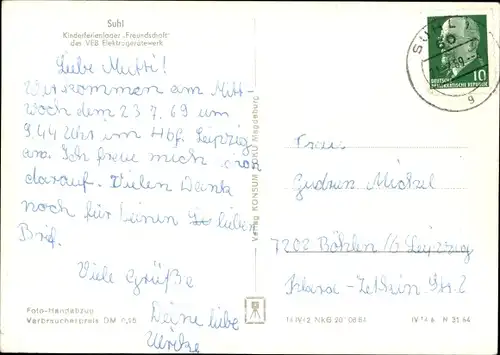 Suhl
Kinderferienlager „Freundschaft"
des VEB Elektrogerätewerk
Liebe Mutti!
Wir kommen am Mitt-
woch dem 23.7.69 um
9.44 Uhr im Hbf. Leipzig
an. Ich freue mich schon
darauf. Vielen Dank
noch für Deinen lieben
Brief.
Viele Grüße
Deine liebe
Ulrike
Foto-Handabzug
Verbraucherpreis DM
Verlag KONSUM FOKU Magdeburg
SUHL
60
g
10
DEUTSCHE
DEMOKRATISCHE REPUBLIK
Frau
Gudrun
7202 Böhlen b/ Leipzig
Klara-Zetkin Str. 2